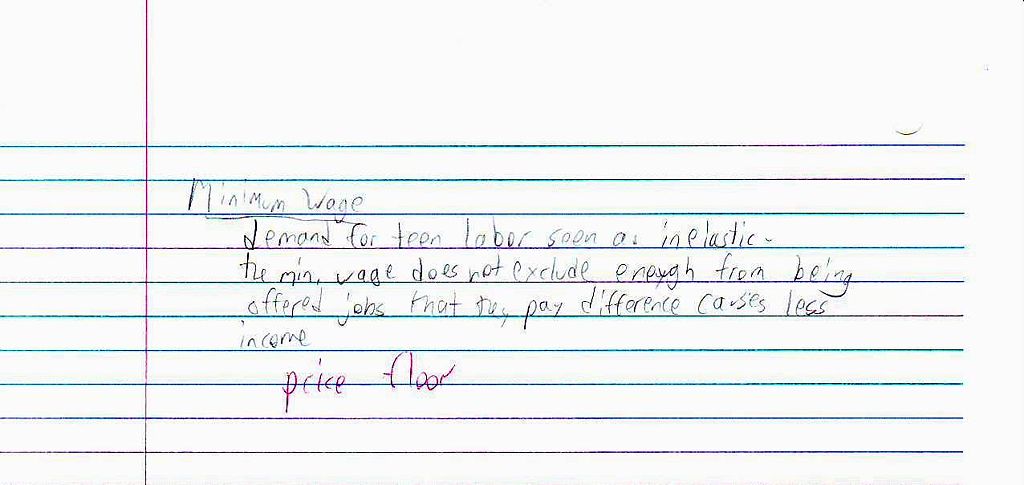 Minimum Wage
demand for teen labor seen as inelastic.
the min, wage does not exclude enough from being
offered jobs that pay difference causes less
income
price floor